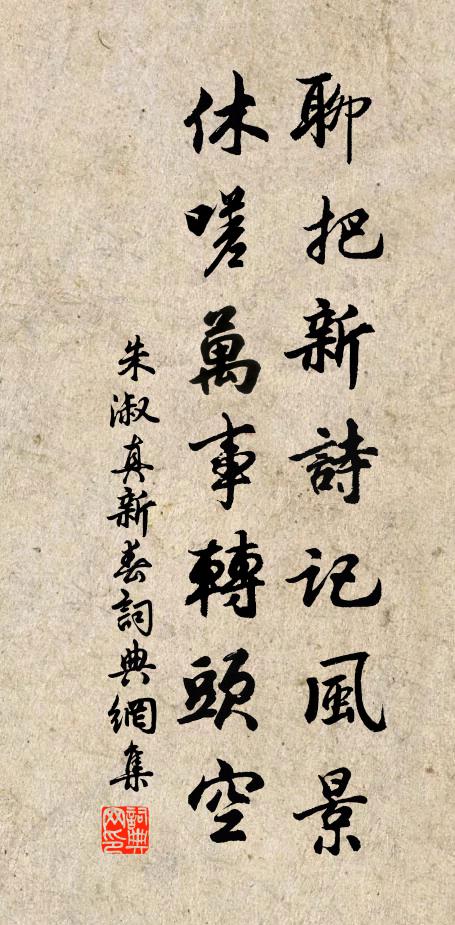 聊把新詩記風景
休嗟萬事轉頭空
朱淑真新春詞典網集
詞典网印